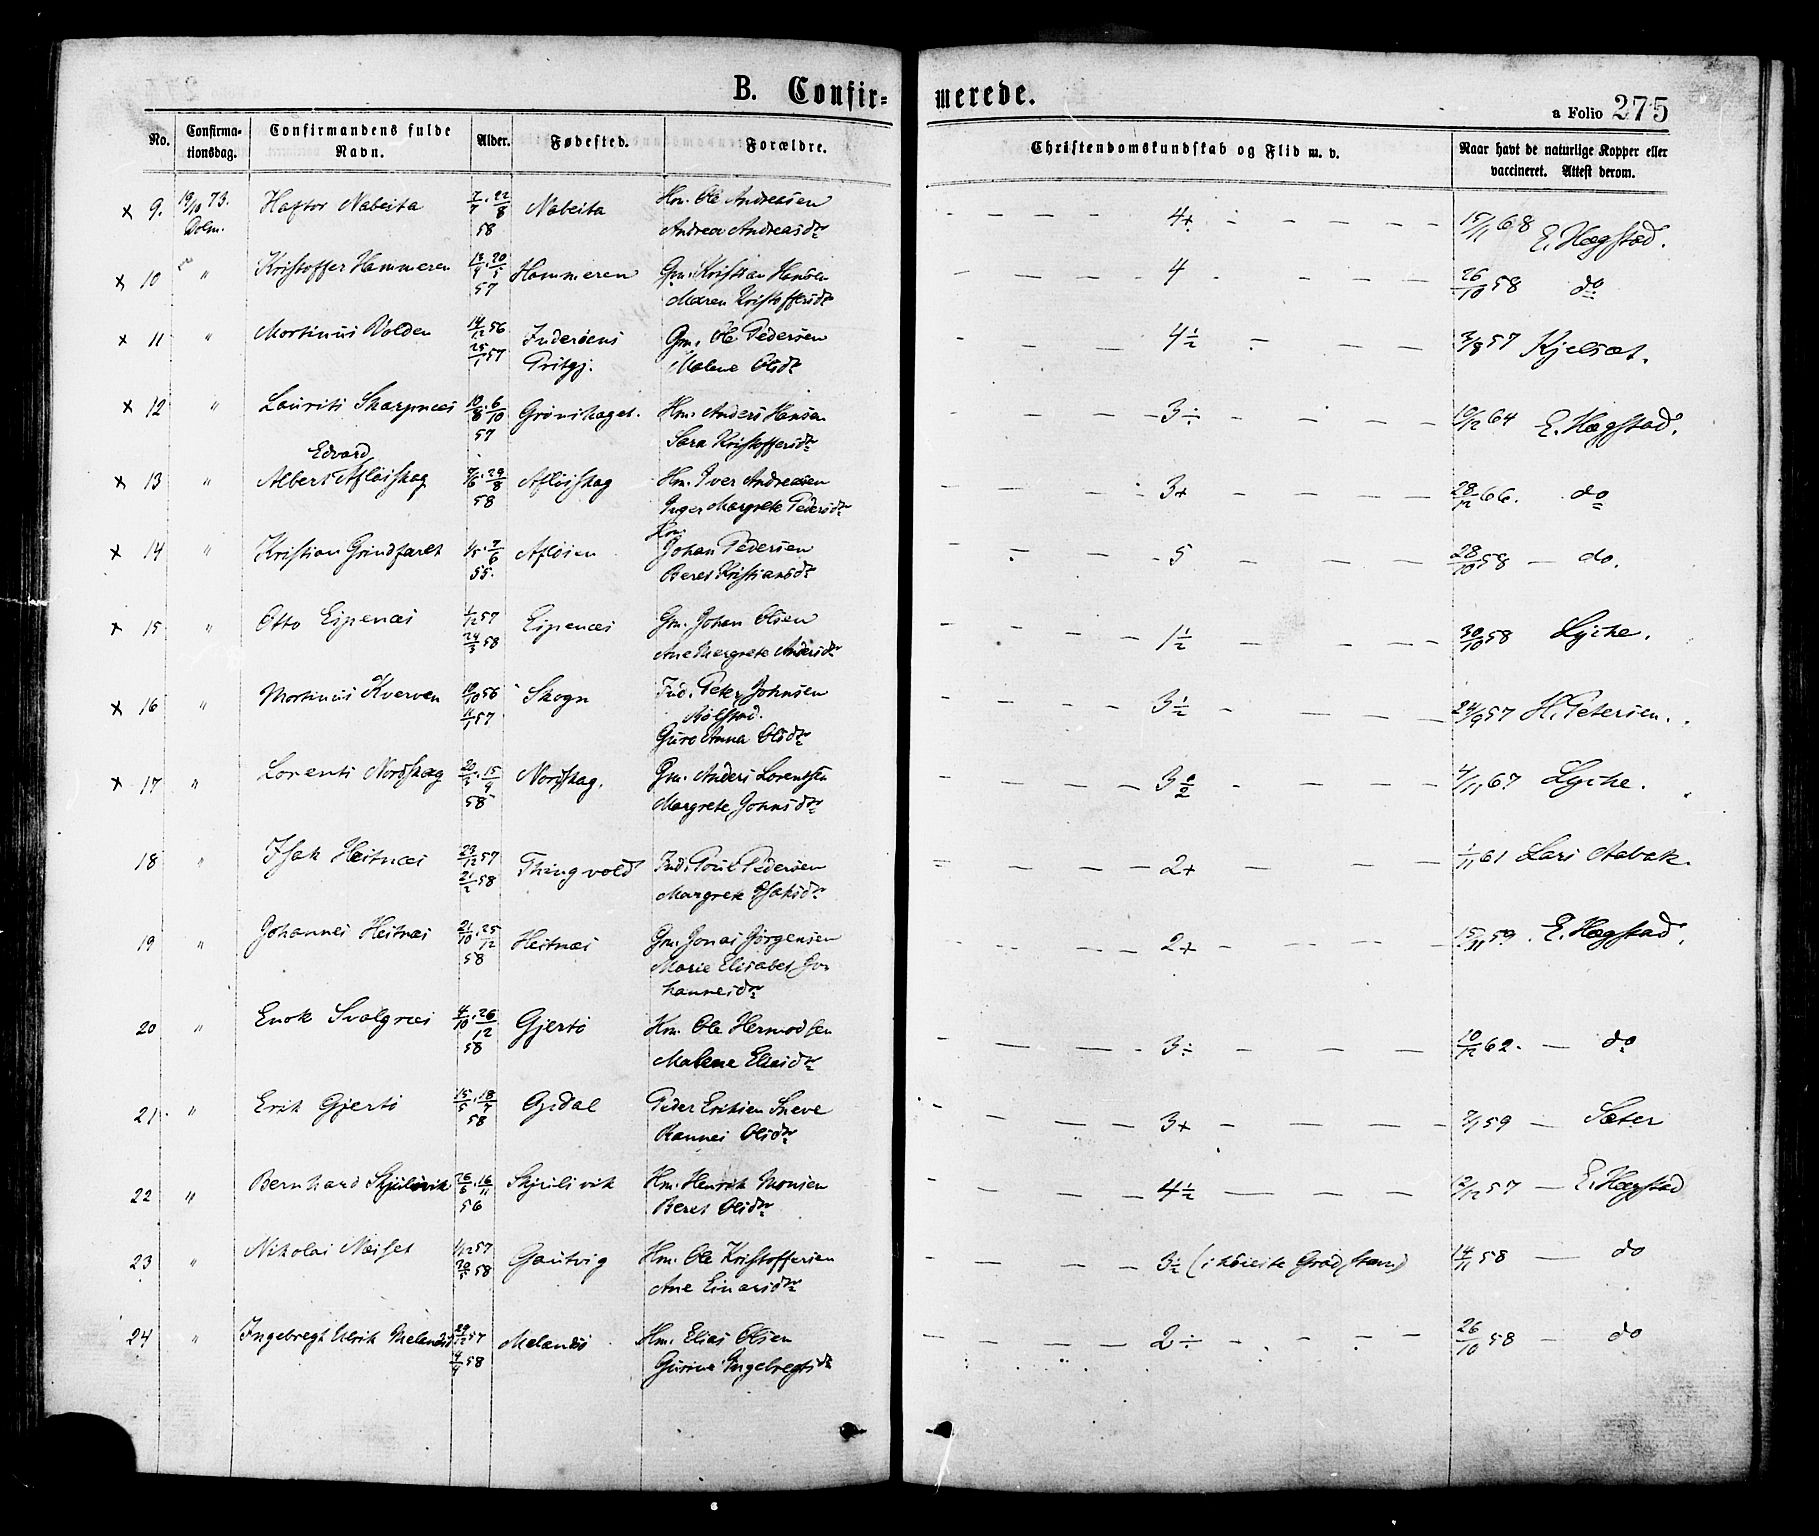 B. Confir-
merede.
a Folio 275
No.
Confirma-
tionsdag.
Confirmandens fulde
Navn.
Alder.
Fødested.
Forældre.
Christendomskundskab og Flid m. v.
Naar havt de naturlige Kopper eller
vaccineret. Attest derom.
x 9. 19/10 73. Haftor Nabeita 7/7. 22/8 Nabeita Hm. Ole Andreasen — 4+ — 15/11 68 E. Hegstad.
Dolm. 58 Andrea Andreasdr
x 10 " Kristoffer Hammeren 20/5 Hammeren Gm. Kristian Hansen — 4 — 26/10 58 do
57 Maren Kristoffersdr
x 11 " Martinus Volden 14/12 56 Inderøens Gm. Ole Pedersen — 4½ — 3/8 57 Kjelsat.
25/1 57 Prstgj. Malene Olsdr
x 12 " Laurits Skarpnæs 10/8. 6/10 Grønskaget. Hm. Anders Hansen — 3÷ — 10/12 64 E. Hegstad.
57 Sara Kristoffersdr
Edvard
x 13 " Albert Afløiskag 7/6. 29/8 Afløiskag Hm. Iver Andreasen — 3+ — 28/12 66. do
58 Inger Margrete Pedersdr
Hm.
x 14 " Kristian Grindfaret 1/5. 7/6 Afløien Johan Pedersen — 5 — 28/10 58 — do.
55. Beret Kristiansdr
x 15 " Otto Espenæs 1/12 57 Espenæs Gm. Johan Olsen — 1½ — 30/10 58 Lyche.
24/3 58 Ane Margrete Andersdr
x 16 " Martinus Kverven 10/10 56 Skogn Ind. Peter Johnsen — 3½ — 24/9 57 H. Petersen.
11/1 57 Rølstad.
Guro Anna Olsdr
x 17 " Lorents Nordskag 20/3. 15/9 Nordskag. Gm. Anders Lorentsen — 3 — 4/11 67 Lyche.
58 Margrete Johnsdr
18 " Isak Heitnæs 23/12 57 Thingvold Ind. Poul Pedersen — 2+ — 1/11 61 Lars Aabak.
21/2 58 Margrete Isaksdr
19 " Johannes Heitnæs 21/10. 25/12 Heitnæs Gm. Jonas Jørgensen — 2+ — 15/11 59. E. Hegstad.
58 Marie Elisabet Jo-
hannesdr
20 " Enok Svalgnæs 4/10. 26/12 Gjertø Hm. Ole Hermodsen — 3÷ — 10/12 62. — do
58 Malene Eliasdr
21. " Erik Gjertø 15/5. 18/7 Opdal Peder Eriksen Sneve — 3+ — 59 — Sæter
58 Rannei Olsdr
22 " Bernhard Skjulsvik 26/6. 16/11 Skjulsvik Hm. Henrik Monsen — 4½ — 12/12 57 — E. Hegstad
56 Beret Olsdr
23 " Nikolai Neiset 1/12 57 Gautvig Hm. Ole Kristoffersen — 3½ (i høieste Grad ) 14/11 58 — do
58 Ane Einarsdr
24 " Ingebregt Ulrik Melandsø 29/12 57 Melandsø Hm. Elias Olsen — 2÷ — 26/10 58 — do
4/4 58 Gurine Ingebregtsdr